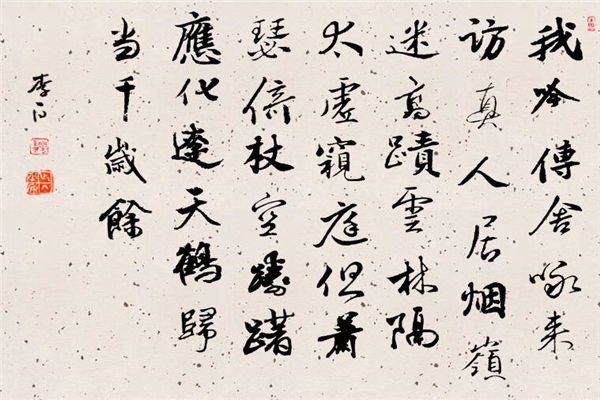 我吟傳舍咏来
訪真人居烟嶺
迷高蹟雲林隔
太虛窺庭但蕭
瑟倚杖空躊躇
應代遼天鶴歸
当千歲餘
李白